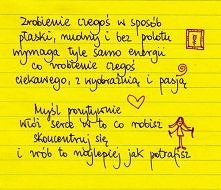 Zrobienie czegoś w sposób
płaski, nudny i bez polotu
wymaga tyle samo energii
co zrobienie czegoś
ciekawego, z wyobraźnią i pasją
Myśl pozytywnie
Włóż serce w to co robisz
skoncentruj się
i zrób to najlepiej jak potrafisz